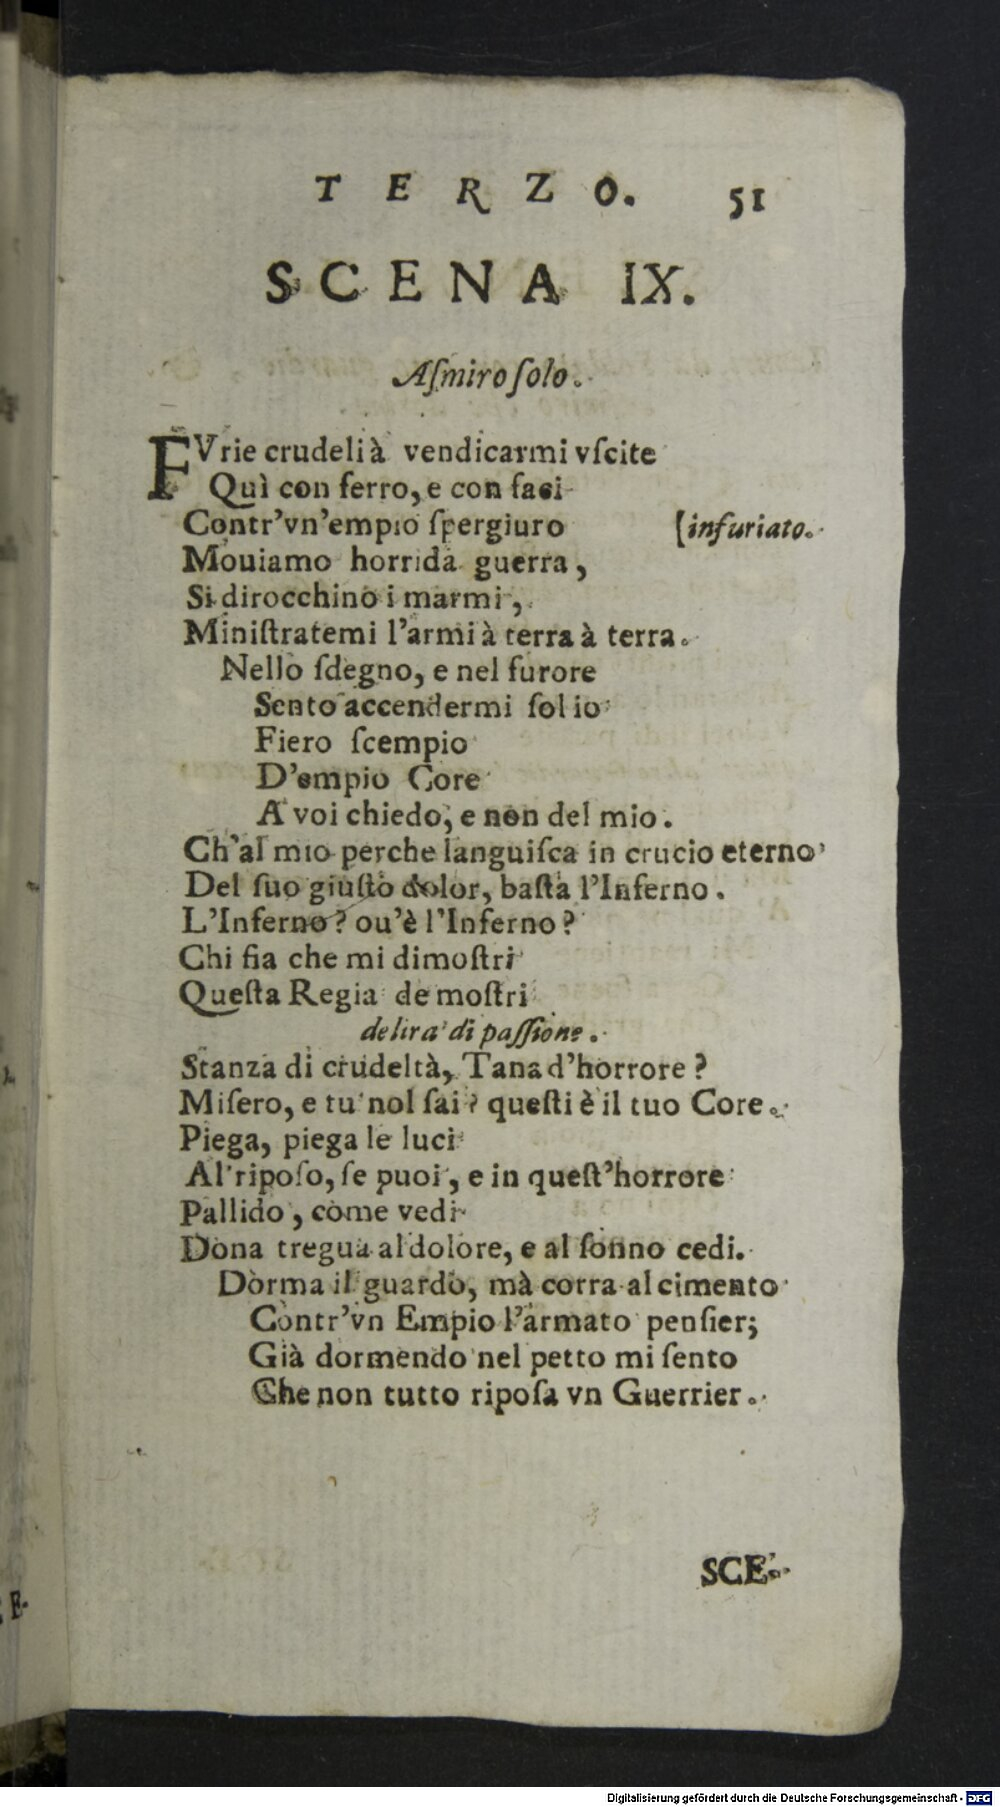 TERZO. 51
SCENA IX.
Aſmiro ſolo.
FVrie crudeli à vendicarmi vſcite
Quì con ferro, e con faci
Contr'vn'empio ſpergiuro [infuriato.
Mouiamo horrida guerra,
Si dirocchino i marmi,
Miniſtratemi l'armi à terra à terra.
Nello ſdegno, e nel furore
Sento accendermi ſol io
Fiero ſcempio
D'empio Core
A voi chiedo, e non del mio.
Ch'al mio perche languiſca in crucio eterno
Del ſuo giuſto dolor, baſta l'Inferno.
L'Inferno? ou'è l'Inferno?
Chi fia che mi dimoſtri
Queſta Regia de moſtri
delira di paſſione.
Stanza di crudeltà, Tana d'horrore?
Miſero, e tu nol ſai? queſti è il tuo Core.
Piega, piega le luci
Al ripoſo, ſe puoi, e in queſt'horrore
Pallido, come vedi
Dona tregua al dolore, e al ſonno cedi.
Dorma il guardo, mà corra al cimento
Contr'vn Empio l'armato penſier;
Già dormendo nel petto mi ſento
Che non tutto ripoſa vn Guerrier.
SCE-
E-
Digitalisierung gefördert durch die Deutsche Forschungsgemeinschaft - DFG